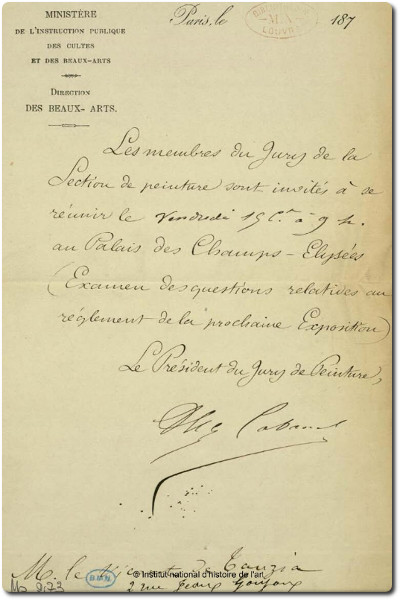 MINISTÈRE
DE L'INSTRUCTION PUBLIQUE
DES CULTES
ET DES BEAUX-ARTS
DIRECTION
DES BEAUX-ARTS.
Paris, le 187
LOUVRE
Les membres du Jury de la
Section de peinture sont invités à se
réunir le Vendredi 15 Ct à 9 h.
au Palais des Champs-Elysées
(Examen des questions relatives au
règlement de la prochaine Exposition)
Le Président du Jury de Peinture,
Alex Cabanel
M. le Vicomte de Tauzia
2 rue Jean Goujon
© Institut national d'histoire de l'art